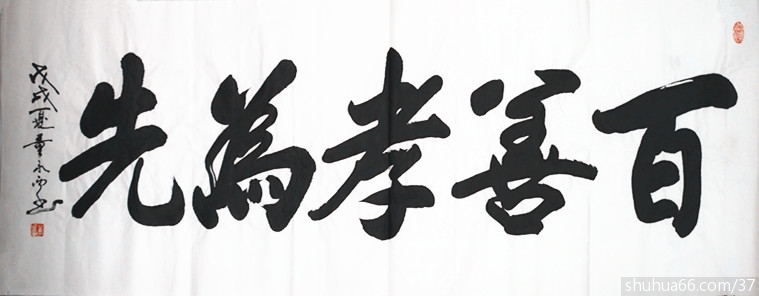 百善孝為先
戊戌夏童永西书
shuhua66.com/37